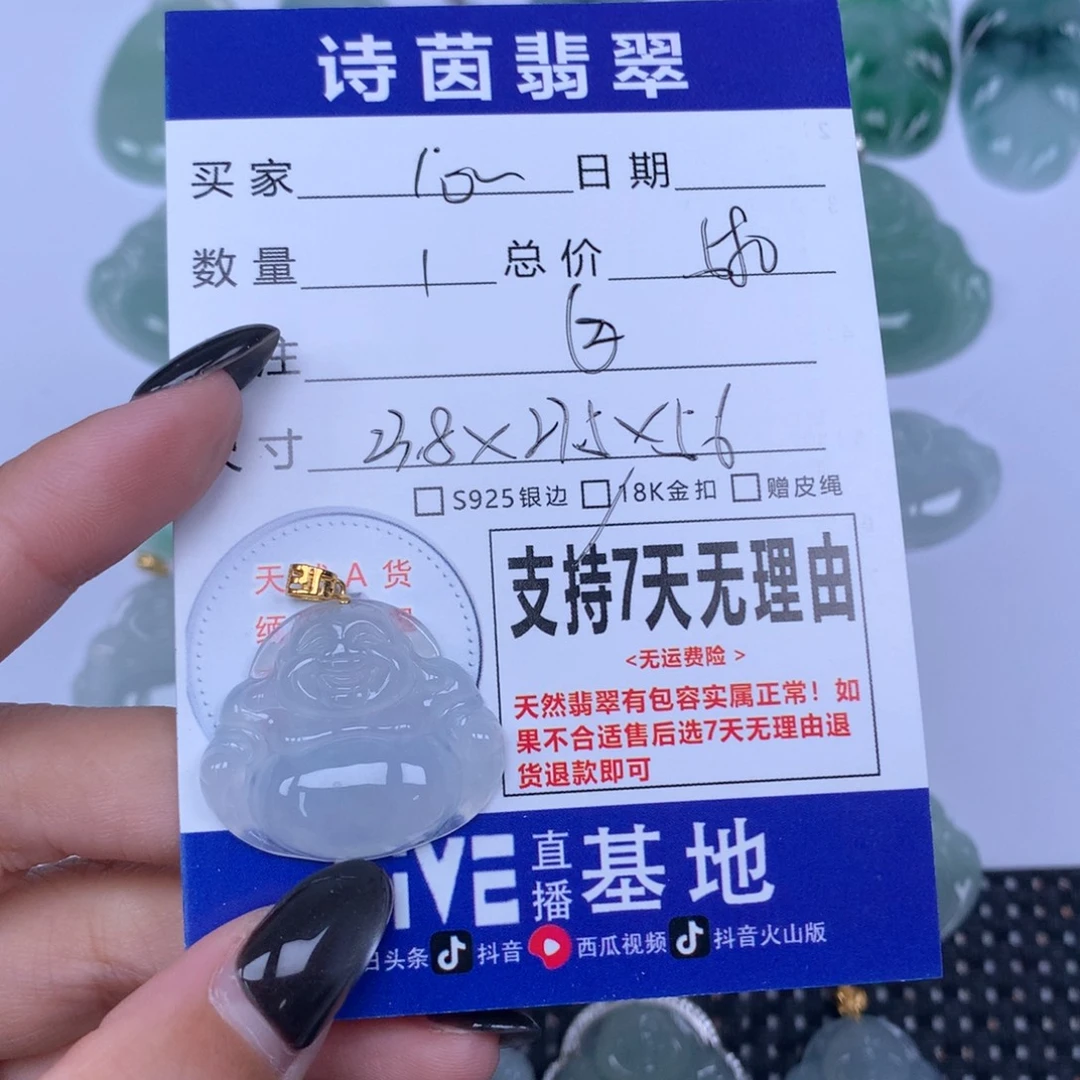 诗茵翡翠
买家 lon 日期
数量 1 总价
注
寸 23.8×27.5×5.6
□S925银边 □18K金扣 □赠皮绳
天 A 货
缅
支持7天无理由
<无运费险>
天然翡翠有包容实属正常！如
果不合适售后选7天无理由退
货退款即可
iVE 直播 基地
日头条 抖音 西瓜视频 抖音火山版